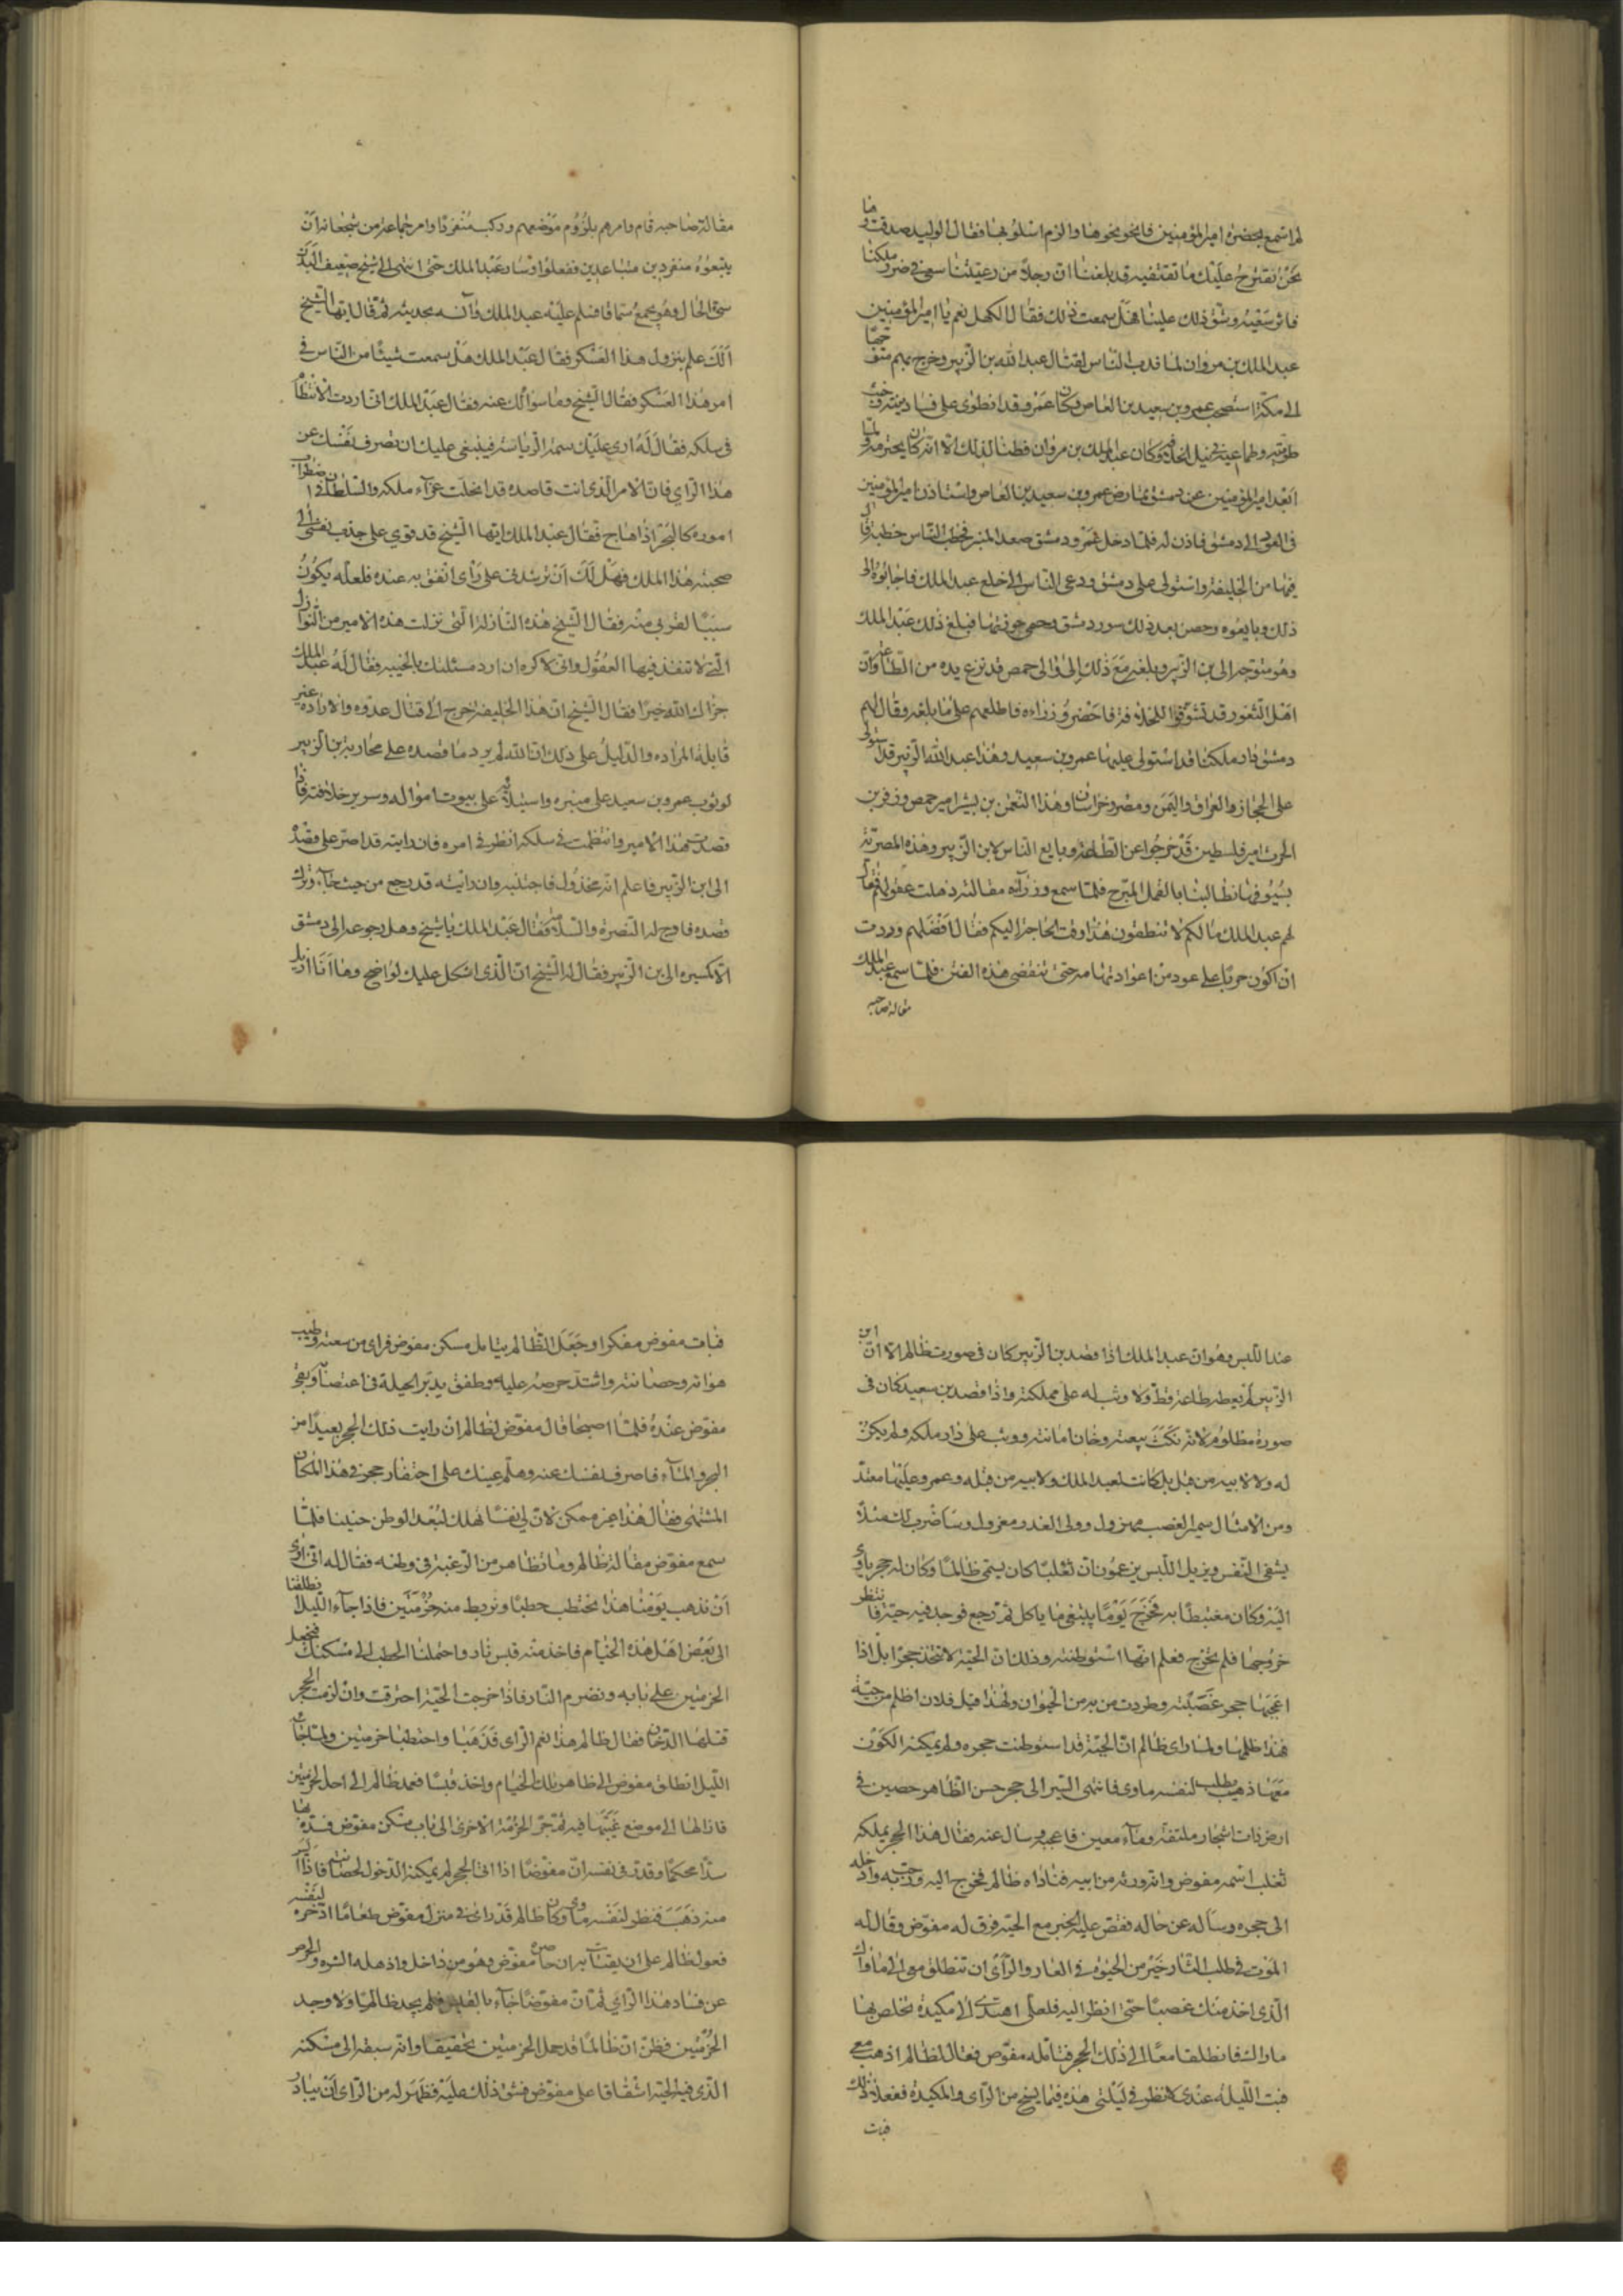 لم اسمع بحضرة امير المؤمنين فانحو نحوها والزم اسلوبها فقال الوليد صدقت وها
نحن نقترح عليك ما تقتفيه قد بلغنا ان رجلا من رعيتنا سعى في ضرر ملكنا
فاثر سعيه وشق ذلك علينا هل سمعت ذلك فقال الكهل نعم يا امير المؤمنين
عبد الملك بن مروان لما ندب الناس لقتال عبد الله بن الزبير وخرج بهم متوجها
الى مكة استصحب عمرو بن سعيد بن العاص وكان عمرو قد انطوى على فساد نية وخبث
طوية وطماعية في نيل الخلافة وكان عبد الملك بن مروان فطنا لذلك الا انه كان يحترمه ولما
ابعد امير المؤمنين عن دمشق تمارض عمرو بن سعيد بن العاص واستاذن امير المؤمنين
في العود الى دمشق فاذن له فلما دخل عمرو دمشق صعد المنبر فخطب الناس خطبة نال
فيها من الخليفة واستولى على دمشق ودعى الناس الى خلع عبد الملك فاجابوه الى
ذلك وبايعوه وحصن بعد ذلك سور دمشق وحمى حوزتها فبلغ ذلك عبد الملك
وهو متوجه الى بن الزبير وبلغه مع ذلك ان والى حمص قد نزع يده من الطاعة وان
اهل الثغور قد تشوفوا للخلاف فاحضر وزراءه فاطلعهم على ما بلغه وقال لهم
دمشق دار ملكنا قد استولى عليها عمرو بن سعيد وهذا عبد الله الزبير قد استولى
على الحجاز والعراق واليمن ومصر وخراسان وهذا النعمن بن بشير امير حمص وزفر بن
الحرث امير فلسطين قد خرجوا عن الطاعة وبايع الناس لابن الزبير وهذه المصرية
بسيوفها تطالبنا بالفعل المبرح فلما سمع وزراه مقالته ذهلت عقولهم فقال
لهم عبد الملك ما لكم لا تنطقون هذا وقت الحاجة اليكم فقال افضلهم وددت
ان اكون حربا على عود من اعواد تهامة حتى تنقضى هذه الفتن فلما سمع عبد الملك
مقالة صاحبه
مقالة صاحبه قام وامرهم بلزوم موضعهم وركب منفردا وامر جماعة من شجعانه ان
يتبعوه منفردين متباعدين ففعلوا وسار عبد الملك حتى انتهى الى شيخ ضعيف البدن
سئ الحال وهو يجمع سماقا فسلم عليه عبد الملك وآنسه بحديثه ثم قال ايها الشيخ
الك علم بنزول هذا العسكر فقال عبد الملك هل سمعت شيئا من الناس في
امر هذا العسكر فقال الشيخ وما سؤالك عنه فقال عبد الملك انى اردت الانتظام
في سلكه فقال له ارى عليك سمة الرياسة فينبغى عليك ان تصرف نفسك عن
هذا الراي فان الامر الذى انت قاصده قد انحلت عرآء ملكه والسلطان في اضطراب
اموره كالبحر اذا هاج فقال عبد الملك ايها الشيخ قد قوي على جذب نفسى الى
صحبة هذا الملك فهل لك ان ترشدنى على راى اتفق به عنده فلعله يكون
سببا لقربى منه فقال الشيخ هذه النازلة التى نزلت هذه الامير من النوازل
التى لا تنفذ فيها العقول وانى لا كره ان ارد مسئلتك بالخيبة فقال له عبد الملك
جزاك الله خيرا فقال الشيخ ان هذا الخليفة خرج الى قتال عدوه والاراده غير
قابلة المراده والدليل على ذلك ان الله لم يرد ما قصده على محاربة بن الزبير
لوثوب عمرو بن سعيد على منبره واستيلائه على بيوت امواله وسرير خلافته فاذا
قصدت هذا الامير وانتظمت في سلكه انظر في امره فان رايته قد اصر على قصد
الى ابن الزبير فاعلم انه مخذول فاجتنبه وان رايته قد رجع من حيث جآء وترك
قصده فارج له النصرة والسلامة فقال عبد الملك يا شيخ وهل رجوعه الى دمشق
الا كمسيره الى بن الزبير فقال له الشيخ ان الذى اشكل عليك لواضح وها انا ازيل
عند اللبس وهو ان عبد الملك اذا قصد بن الزبير كان في صورت ظالم لان ابن
الزبير لم يعطه طاعة قط ولا وثب له على مملكته واذا قصد بن سعيد كان في
صورة مظلوم لانه نكث بيعته وخان امانته ووثب على دار ملكه ولم يكن
له ولا لابيه من قبل بل كانت لعبد الملك ولابيه من قبله وعمرو عليها معتد
ومن الامثال سمير الغصب مهزول وولى الغدر معزول وساضرب لك مثلا
يشفى النفس ويزيل اللبس يزعمون ان ثعلبا كان يسمى ظالما وكان له جحر ياوى
اليه وكان مغتبطا به فخرج يوما يبتغى ما ياكل ثم رجع فوجد فيه حية فانتظر
خروجها فلم تخرج فعلم انها استوطنته وذلك ان الحية لا تتخذ جحرا بل اذا
اعجبها جحر غصبته وطردت من به من الحيوان ولهذا قيل فلان اظلم من حية
فهذا ظلمها ولما راى ظالم ان الحية قد استوطنت جحره ولم يمكنه الكون
معها ذهب يطلب لنفسه ماوى فانتهى السير الى جحر حسن الظاهر حصين في
ارض ذات اشجار ملتفة ومآء معين فاعجبه وسال عنه فقال هذا الجحر يملكه
ثعلب اسمه مفوض وانه ورثه من ابيه فناداه ظالم فخرج اليه ورحب به وادخله
الى جحره وساله عن حاله فقص عليه الخبر مع الحية فرق له مفوض وقال له
الموت في طلب الثار خير من الحيوة في العار والراى ان تنطلق معى الى ماواك
الذى اخذ منك غصبا حتى انظر اليه فلعلى اهتدى الى مكيدة تخلص بها
ماواك فانطلقا معا الى ذلك الجحر فتامله مفوض فقال لظالم اذهب معى
فبت الليلة عندى لانظر في ليلتى هذه فيما يسنح من الراى والمكيدة ففعلا ذلك
فبات
فبات مفوض مفكرا وجعل الظالم يتامل مسكن مفوض فراى من سعته وطيب
هوائه وحصانته واشتد حرصه عليه وطفق يدبر الحيلة في اغتصابه ونفى
مفوض عنده فلما اصبحا قال مفوض لظالم انى رايت ذلك الجحر بعيدا من
البحر والمآء فاصرف نفسك عنه وهلم عينك على احتفار جحر في هذا المكان
المشتهى فقال هذا غير ممكن لان لى نفسا تهلك لبعد الوطن حنينا فلما
سمع مفوض مقالة ظالم وما تظاهر من الرغبة في وطنه فقال له انى ارى
ان نذهب يومنا هذا نحتطب حطبا ونربط منه حزمتين فاذا جآء الليل انطلقنا
الى بعض اهل هذه الخيام فاخذ منه قبس نار واحتملنا الحطب الى مسكنك فنجعل
الحزمتين على بابه ونضرم النار فاذا خرجت الحية احترقت وان لزمت الجحر
قتلها الدخان فقال ظالم هذا نعم الراى فذهبا واحتطبا حزمتين ولما جآء
الليل انطلق مفوض الى ظاهر تلك الخيام واخذ قبسا فعمد ظالم الى احد الحزمتين
فازالها الى موضع غيبها فيه ثم جر الحزمة الاخرى الى باب مسكن مفوض فسده بها
سدا محكما وقدر في نفسه ان مفوضا اذا اتى الجحر لم يمكنه الدخول لحصانته فاذا ايس
منه ذهب فنظر لنفسه ماوى وكان ظالم قد راى في منزل مفوض طعاما ادخره لنفسه
فعول ظالم على ان يقتات به ان حاصره مفوض وهو من داخل واذهله الشره والحرص
عن فساد هذا الراى ثم ان مفوضا جآء بالقبس فلم يجد ظالما ولا وجد
الحزمتين فظن ان ظالما قد حمل الحزمتين تخفيفا وانه سبقه الى مسكنه
الذى فيه الحية اشفاقا على مفوض فشق ذلك عليه فظهر له من الراى ان يبادر